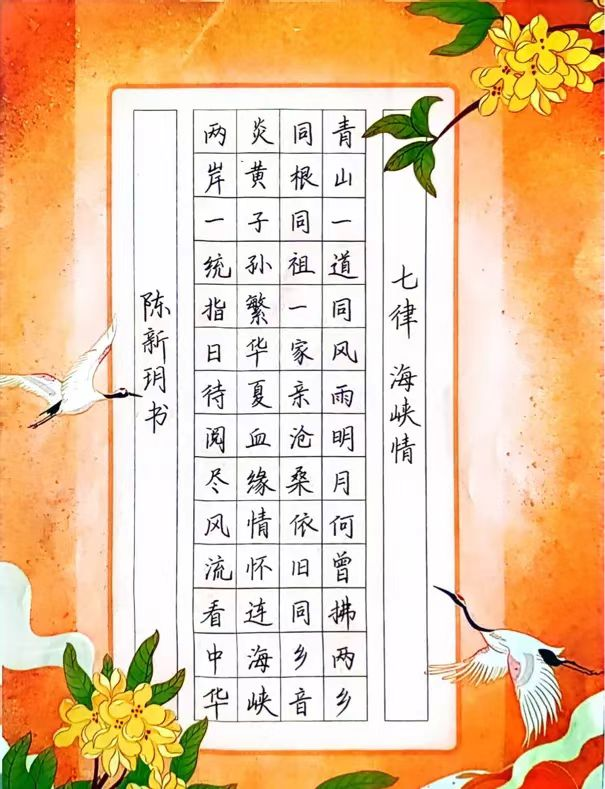 七律 海峡情
青山一道同风雨明月何曾拂两乡
同根同祖一家亲沧桑依旧同乡音
炎黄子孙繁华夏血缘情怀连海峡
两岸一统指日待阅尽风流看中华
陈新玥书